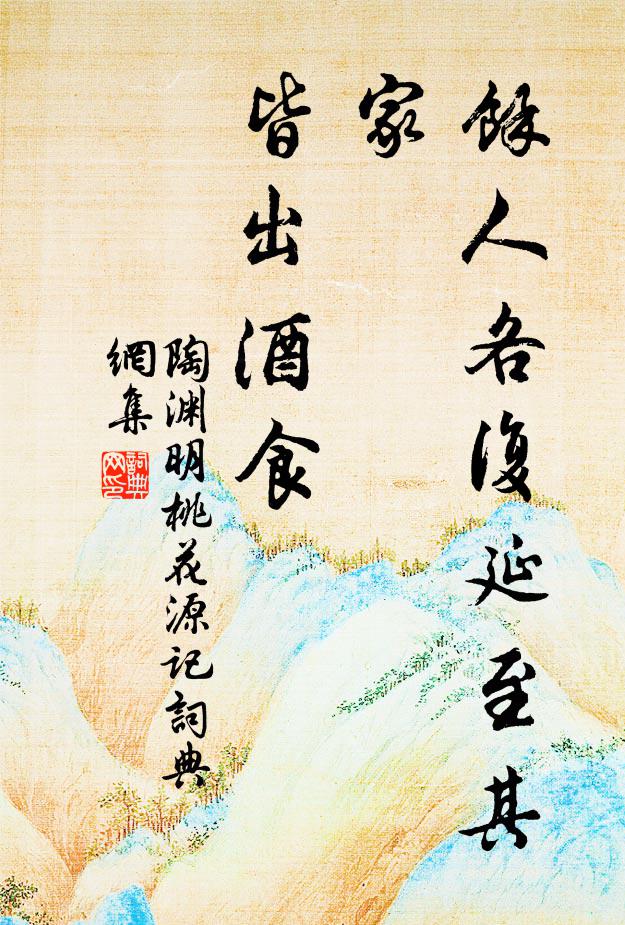 餘人各復延至其
家
皆出酒食
陶渊明桃花源記詞典
網集
詞典
网印